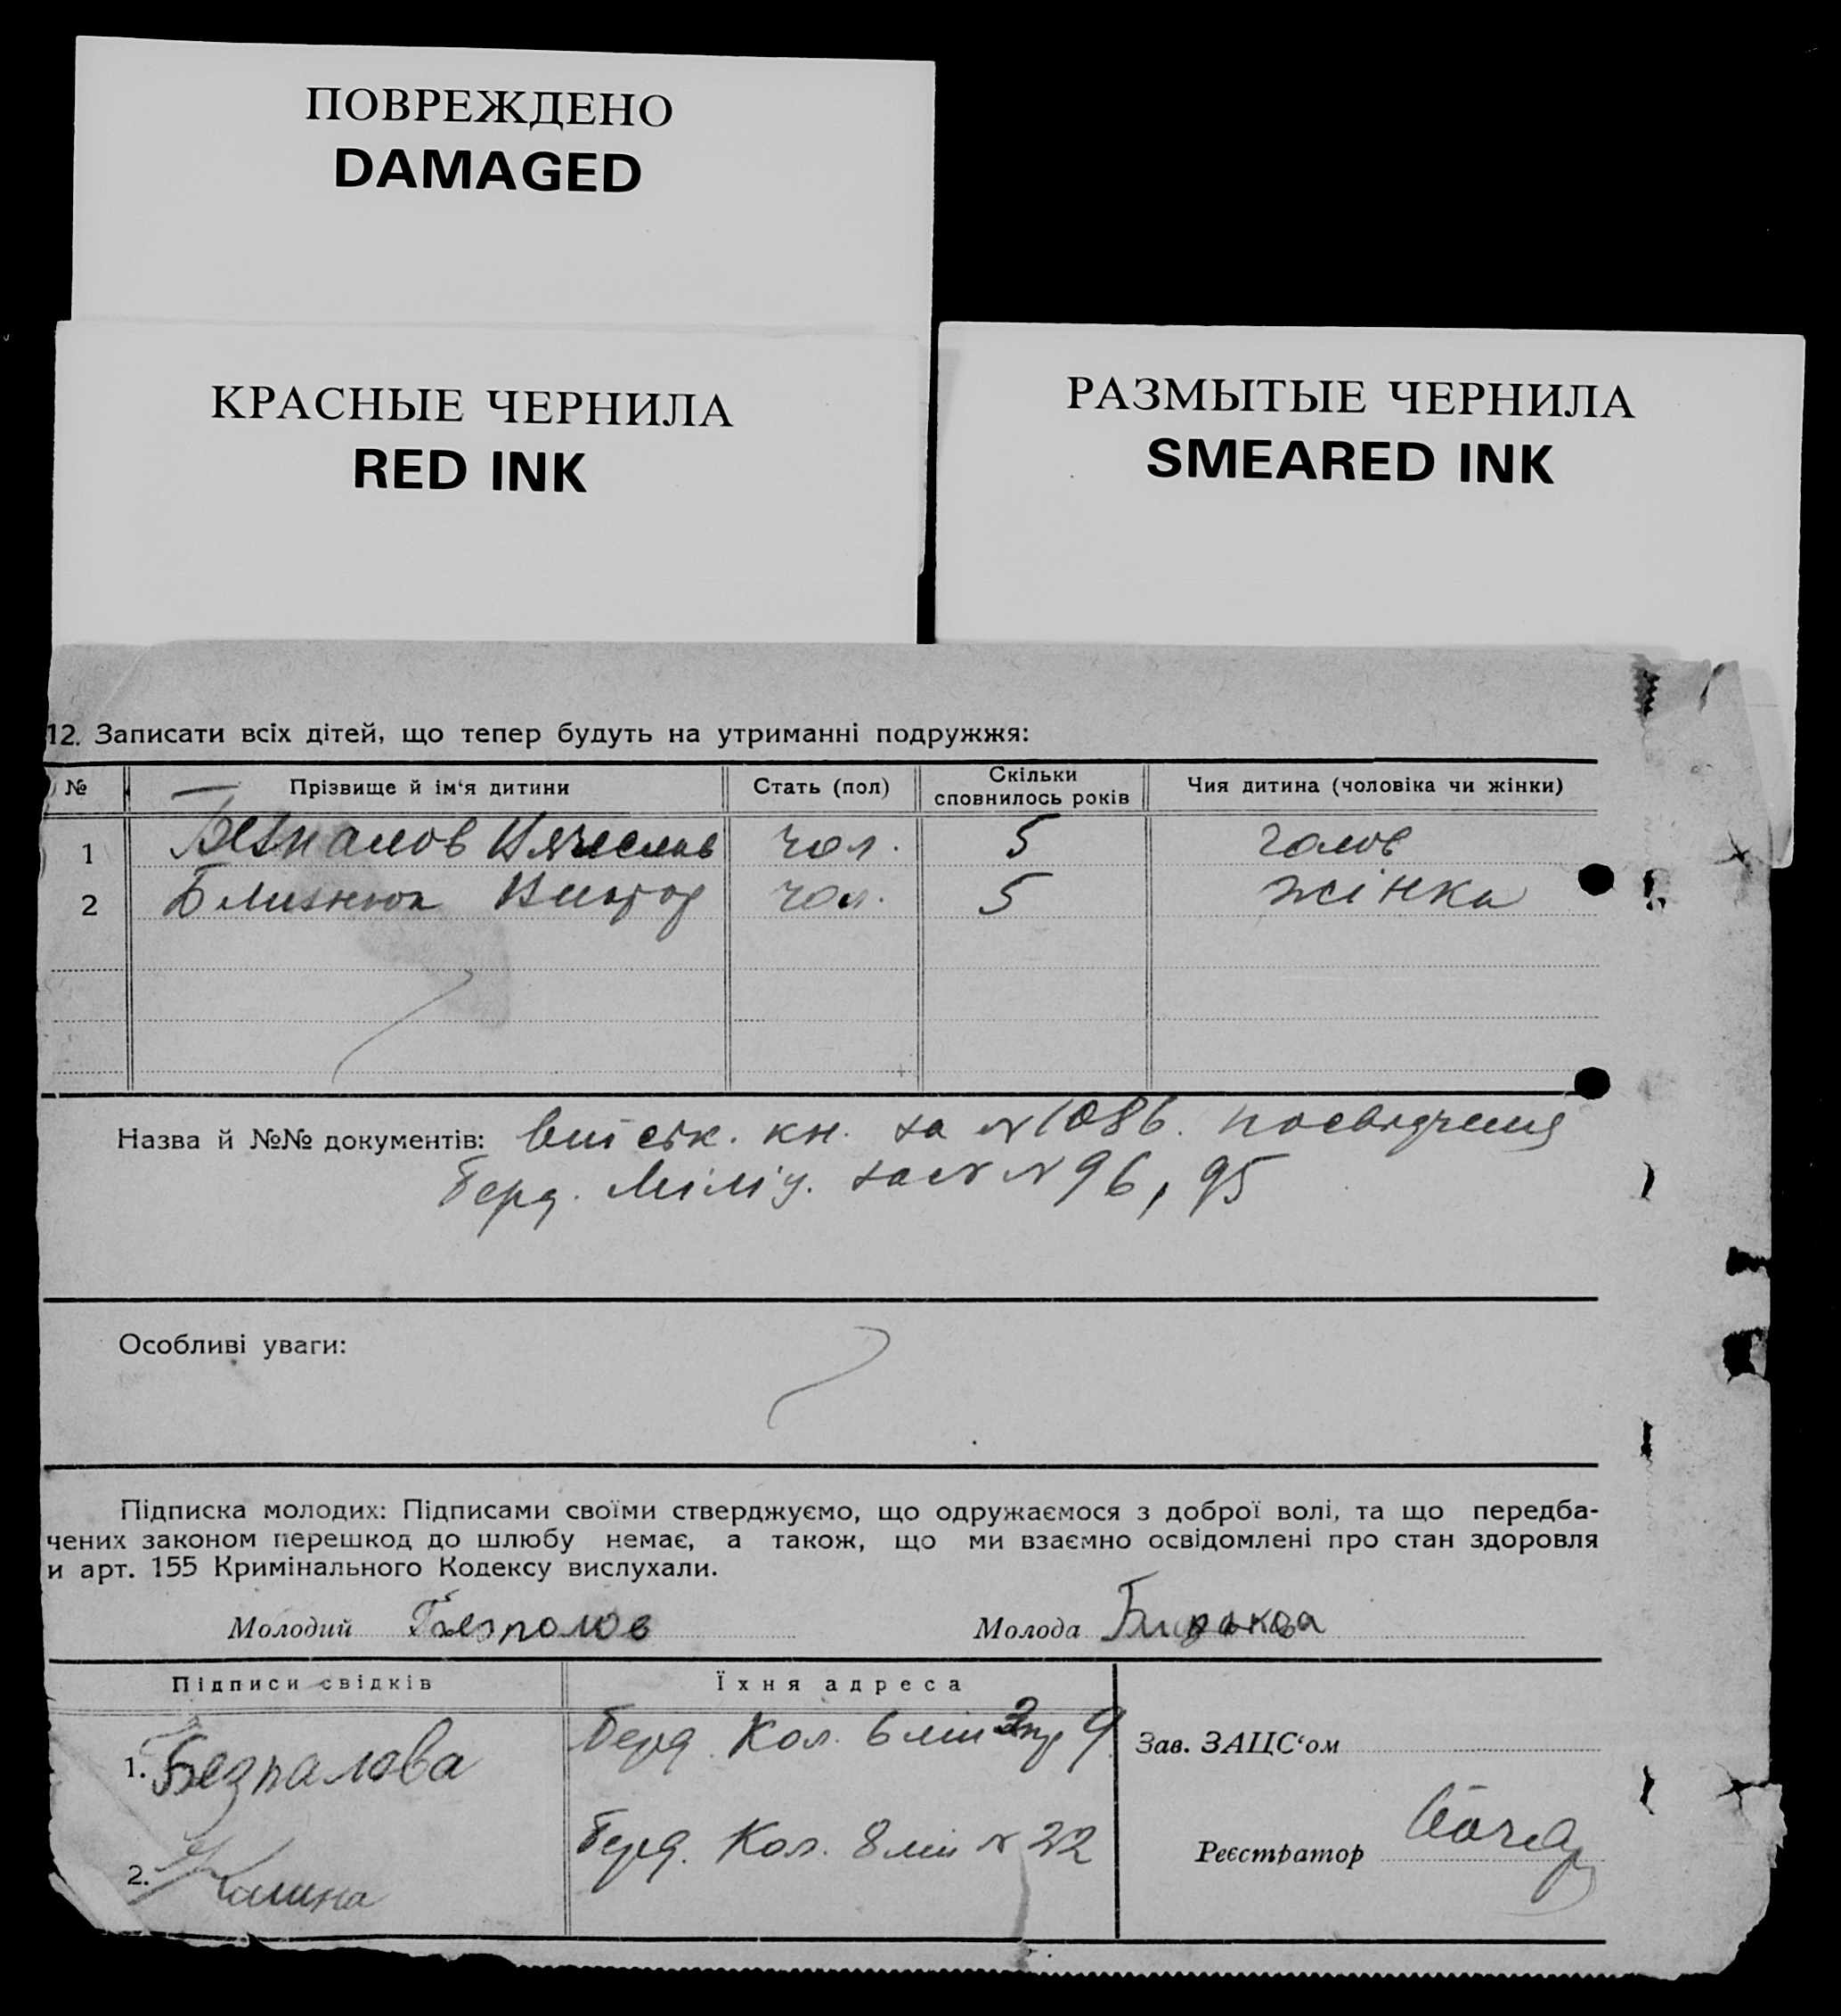 ПОВРЕЖДЕНО
DAMAGED
КРАСНЫЕ ЧЕРНИЛА
RED INK
РАЗМЫТЫЕ ЧЕРНИЛА
SMEARED INK
12. Записати всіх дітей, що тепер будуть на утриманні подружжя:
№ Прізвище й ім‘я дитини Стать (пол) Скільки сповнилось років Чия дитина (чоловіка чи жінки)
1 Безпалов Вячеслав чол. 5 чолов
2 Близнюк Виктор чол. 5 жінки
Назва й №№ документів: військ. кн. за №1086. посвідчення
Берд. Міліц. за №№96, 95
Особливі уваги:
Підписка молодих: Підписами своїми стверджуємо, що одружаємося з доброї волі, та що передба-
чених законом перешкод до шлюбу немає, а також, що ми взаємно освідомлені про стан здоровля
и арт. 155 Кримінального Кодексу вислухали.
Молодий Безпалов Молода
Підписи свідків Їхня адреса
1. Безпалова Берд. Кол. 6 лін 9
Зав. ЗАЦС‘ом
2. Калина Берд. Кол. 8 лін № 22
Реєстратор